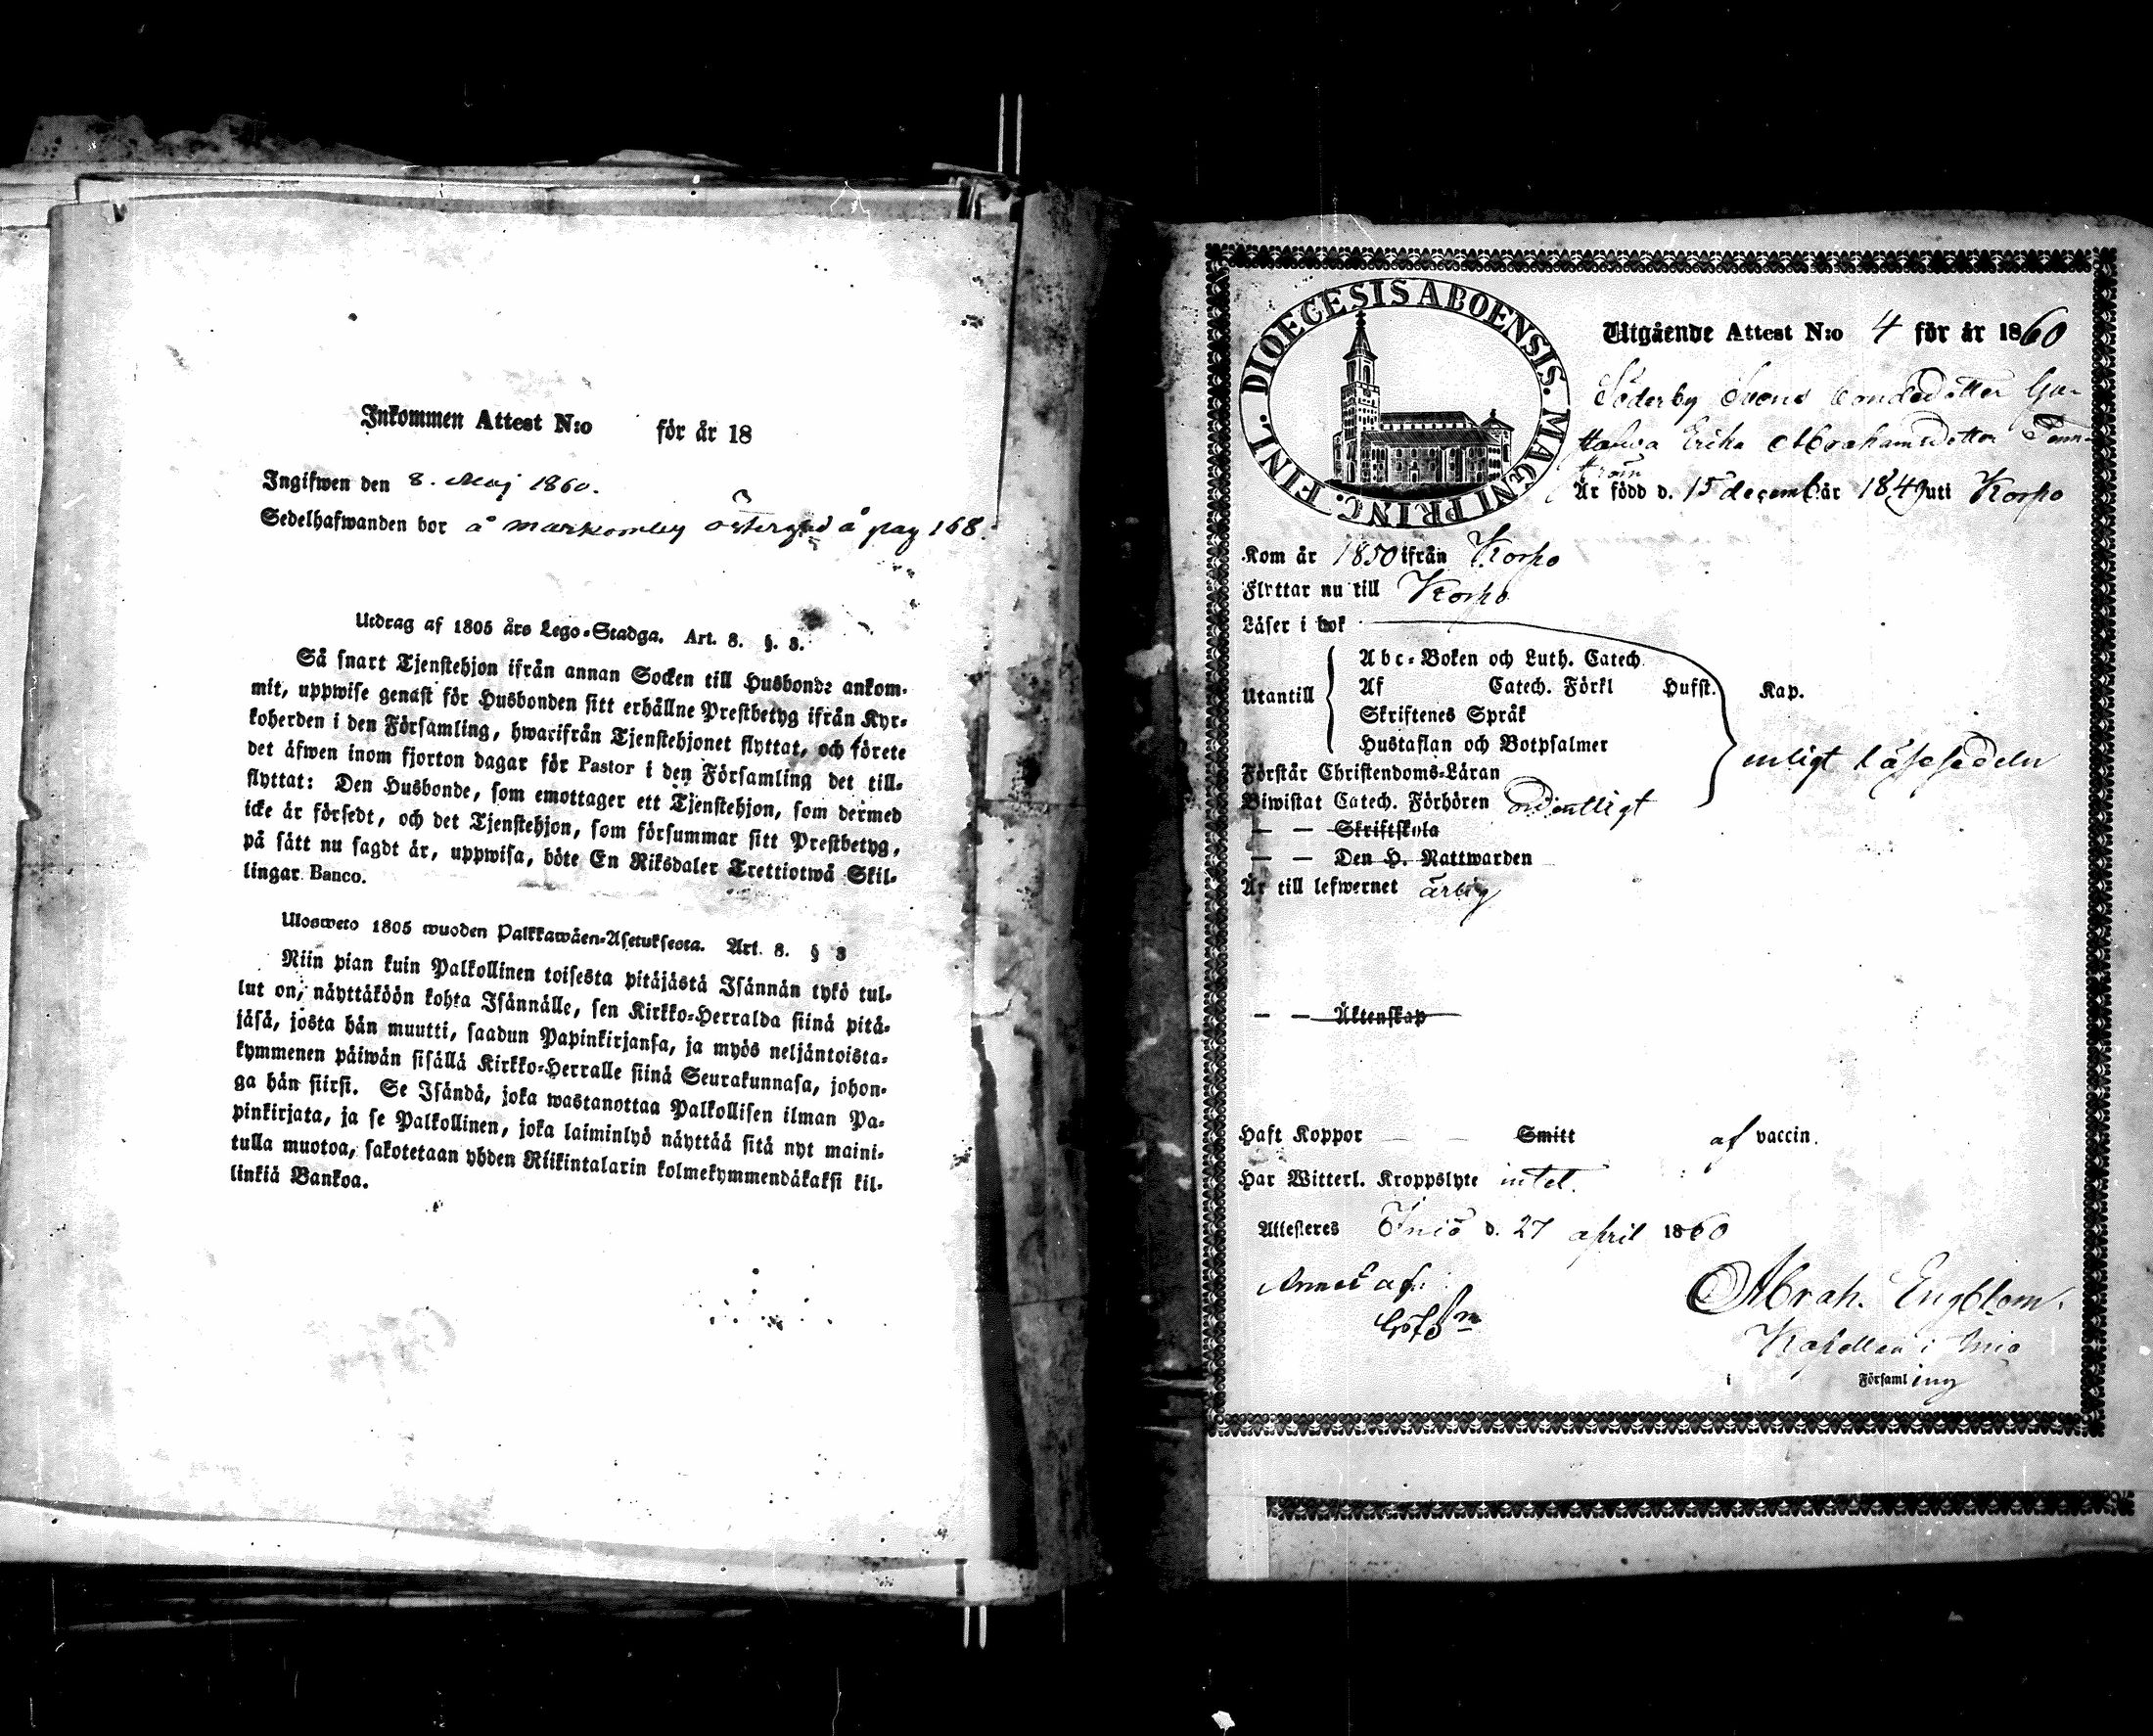 Inkommen Attest N:o för år 18
Ingifwen den 8. Maj 1860.
Sedelhafwanden bor å markomby östergård å pag 168.
Utdrag af 1805 års Lego-Stadga. Art. 8. §. 3.
Så snart Tjenstehjon ifrån annan Socken till Husbonde ankom-
mit, uppwise genast för Husbonden sitt erhållne Prestbetyg ifrån Kyr-
koherden i den Församling, hwarifrån Tjenstehjonet flyttat, och förete
det äfwen inom fjorton dagar för Pastor i den Församling det till-
flyttat: Den Husbonde, som emottager ett Tjenstehjon, som dermed
icke är försedt, och det Tjenstehjon, som försummar sitt Prestbetyg,
på sätt nu sagdt är, uppwisa, böte En Riksdaler Trettiotwå Skil-
lingar Banco.
Ulosweto 1805 wuoden Palkkawäen-Asetuksesta. Art. 8. § 3
Niin pian kuin Palkollinen toisesta pitäjästä Isännän tykö tul-
lut on, näyttäköön kohta Isännälle, sen Kirkko-Herralda siinä pitä-
jäsä, josta hän muutti, saadun Papinkirjansa, ja myös neljäntoista-
kymmenen päiwän sisällä Kirkko-Herralle siinä Seurakunnasa, johon-
ga hän siirsi. Se Isändä, joka wastanottaa Palkollisen ilman Pa-
pinkirjata, ja se Palkollinen, joka laiminlyö näyttää sitä nyt maini-
tulla muotoa, sakotetaan yhden Riikintalarin kolmekymmendäkaksi kil-
linkiä Bankoa.
FINL. DIOECESIS ABOENSIS. MAGNI PRINC.
Utgående Attest N:o 4 för år 1860
Söderby Svens Bondedotter Gu-
stafva Erika Abrahamsdotter
ström
Är född d. 15 decemb år 1849 uti Korpo
Kom år 1850 ifrån Korpo
Flyttar nu till Korpo
Läser i bok
Utantill
Abc-Boken och Luth. Catech.
Af Catech. Förkl Hufst. Kap.
Skriftenes Språk
Hustaflan och Botpsalmer
enligt läsesedeln
Förstår Christendoms-Läran
Biwistat Catech. Förhören ordentligt
— — Skriftskola
— — Den H. Nattwarden
Är till lefwernet ärlig
— — Äktenskap
Haft Koppor — — Smitt af vaccin.
Har Witterl. Kroppslyte intet.
Attesteres Iniö d. 27 april 1860
Annot af
Abrah. Engblom.
Kapellan i Iniö
i Församling